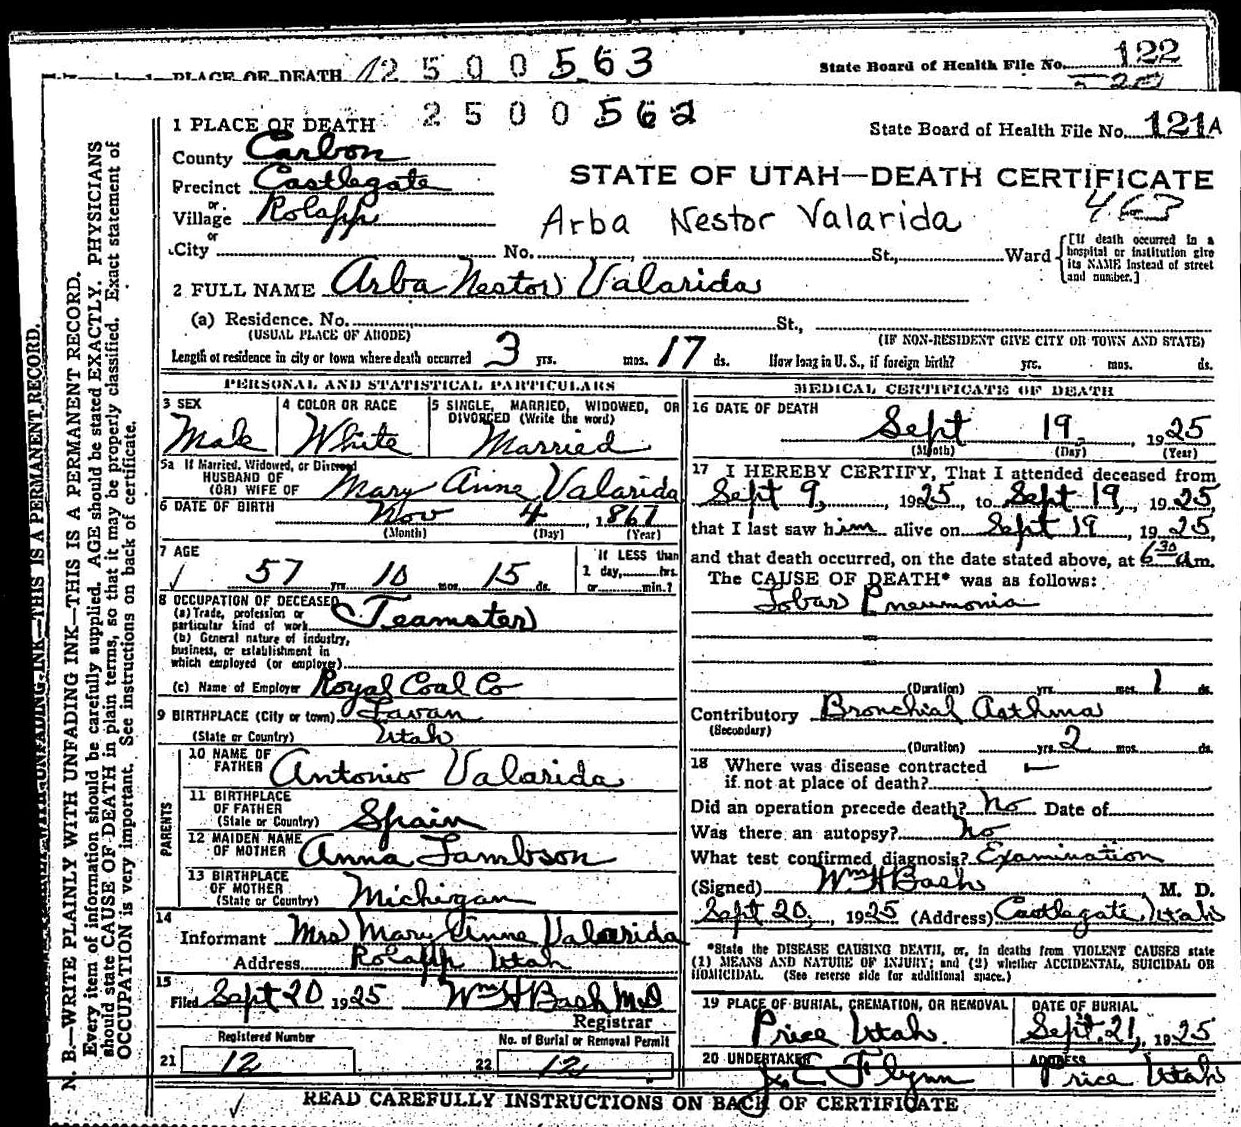 PLACE OF DEATH 12500563 State Board of Health File No. 122
2500562
1 PLACE OF DEATH State Board of Health File No. 121A
County Carbon
STATE OF UTAH—DEATH CERTIFICATE
Precinct Castlegate
or
Village Rolapp
Arba Nestor Valarida
or
City No. St., Ward
[If death occurred in a hospital or institution give its NAME instead of street and number.]
2 FULL NAME Arba Nestor Valarida
(a) Residence. No. St.,
(USUAL PLACE OF ABODE) (IF NON-RESIDENT GIVE CITY OR TOWN AND STATE)
Length of residence in city or town where death occurred 3 yrs. mos. 17 ds. How long in U. S., if foreign birth? yrs. mos. ds.
PERSONAL AND STATISTICAL PARTICULARS
3 SEX
Male
4 COLOR OR RACE
White
5 SINGLE, MARRIED, WIDOWED, OR
DIVORCED (Write the word)
Married
5a If Married, Widowed, or Divorced
HUSBAND OF
(OR) WIFE OF Mary Anne Valarida
6 DATE OF BIRTH Nov 4 1867
(Month) (Day) (Year)
7 AGE
57 yrs. 10 mos. 15 ds.
If LESS than
1 day, hrs.
or min.?
8 OCCUPATION OF DECEASED
(a) Trade, profession or
particular kind of work Teamster
(b) General nature of industry,
business, or establishment in
which employed (or employer)
(c) Name of Employer Royal Coal Co
9 BIRTHPLACE (City or town) Lavan
(State or Country) Utah
PARENTS
10 NAME OF
FATHER Antonio Valarida
11 BIRTHPLACE
OF FATHER
(State or Country) Spain
12 MAIDEN NAME
OF MOTHER Anna Lambson
13 BIRTHPLACE
OF MOTHER
(State or Country) Michigan
14
Informant Mrs Mary Anne Valarida
Address Rolapp Utah
15
Filed Sept 20 1925 Wm H Bash M.D.
Registrar
Registered Number No. of Burial or Removal Permit
21 12 22 12
MEDICAL CERTIFICATE OF DEATH
16 DATE OF DEATH
Sept 19, 1925
(Month) (Day) (Year)
17 I HEREBY CERTIFY, That I attended deceased from
Sept 9, 1925 to Sept 19, 1925,
that I last saw him alive on Sept 19, 1925,
and that death occurred, on the date stated above, at 6 30 am.
The CAUSE OF DEATH* was as follows:
Lobar Pneumonia
(Duration) yrs. mos. 1 ds.
Contributory Bronchial Asthma
(Secondary)
(Duration) yrs. 2 mos. ds.
18 Where was disease contracted
if not at place of death?
Did an operation precede death? No Date of
Was there an autopsy? No
What test confirmed diagnosis? Examination
(Signed) Wm H Bash, M. D.
Sept 20, 1925 (Address) Castlegate, Utah
*State the DISEASE CAUSING DEATH, or, in deaths from VIOLENT CAUSES state
(1) MEANS AND NATURE OF INJURY; and (2) whether ACCIDENTAL, SUICIDAL OR
HOMICIDAL. (See reverse side for additional space.)
19 PLACE OF BURIAL, CREMATION, OR REMOVAL
Price Utah.
DATE OF BURIAL
Sept. 21, 1925
20 UNDERTAKER
J. E. Flynn
ADDRESS
Price Utah
READ CAREFULLY INSTRUCTIONS ON BACK OF CERTIFICATE
N. B.—WRITE PLAINLY WITH UNFADING INK—THIS IS A PERMANENT RECORD.
Every item of information should be carefully supplied. AGE should be stated EXACTLY. PHYSICIANS
should state CAUSE OF DEATH in plain terms, so that it may be properly classified. Exact statement of
OCCUPATION is very important. See instructions on back of certificate.